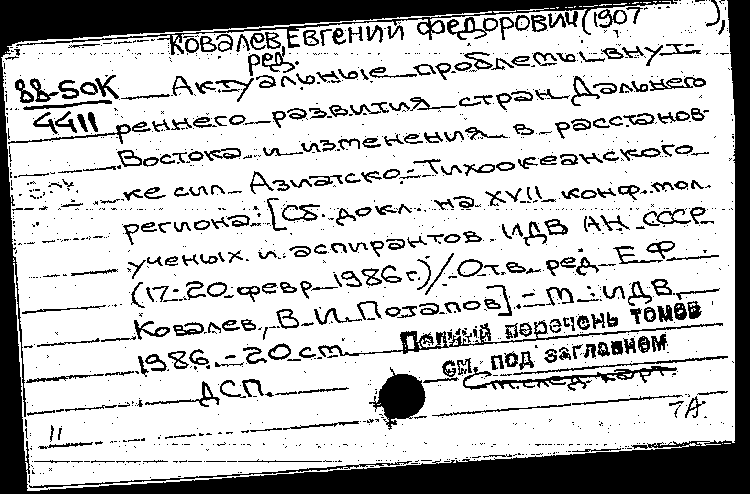 Ковалев, Евгений Федорович (1907 ),
ред.
88-50К Актуальные проблемы внут-
4411 реннего развития стран Дальнего
Востока и изменения в расстанов-
ке сил Азиатско-Тихоокеанского
региона: [Сб. докл. на XVII конф. мол.
ученых и аспирантов ИДВ АН СССР
(17-20 февр. 1986 г.) / Отв. ред. Е. Ф.
Ковалев, В. И. Потапов]. - М.: ИДВ,
1986. - 20 см.
Полный перечень томов
см. под заглавием
ДСП. См. след. карт.
11